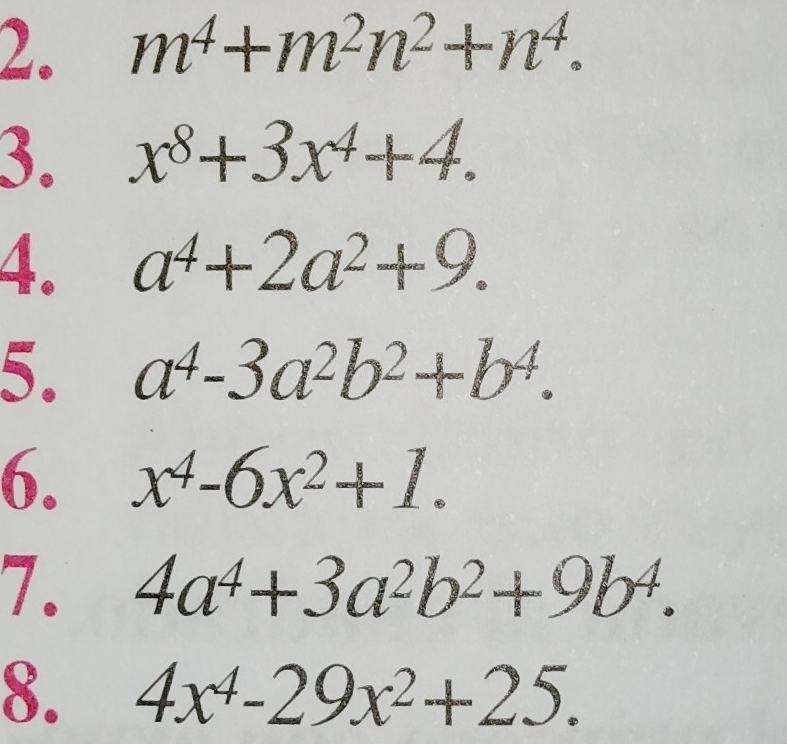 2. m⁴+m²n²+n⁴.
3. x⁸+3x⁴+4.
4. a⁴+2a²+9.
5. a⁴-3a²b²+b⁴.
6. x⁴-6x²+1.
7. 4a⁴+3a²b²+9b⁴.
8. 4x⁴-29x²+25.